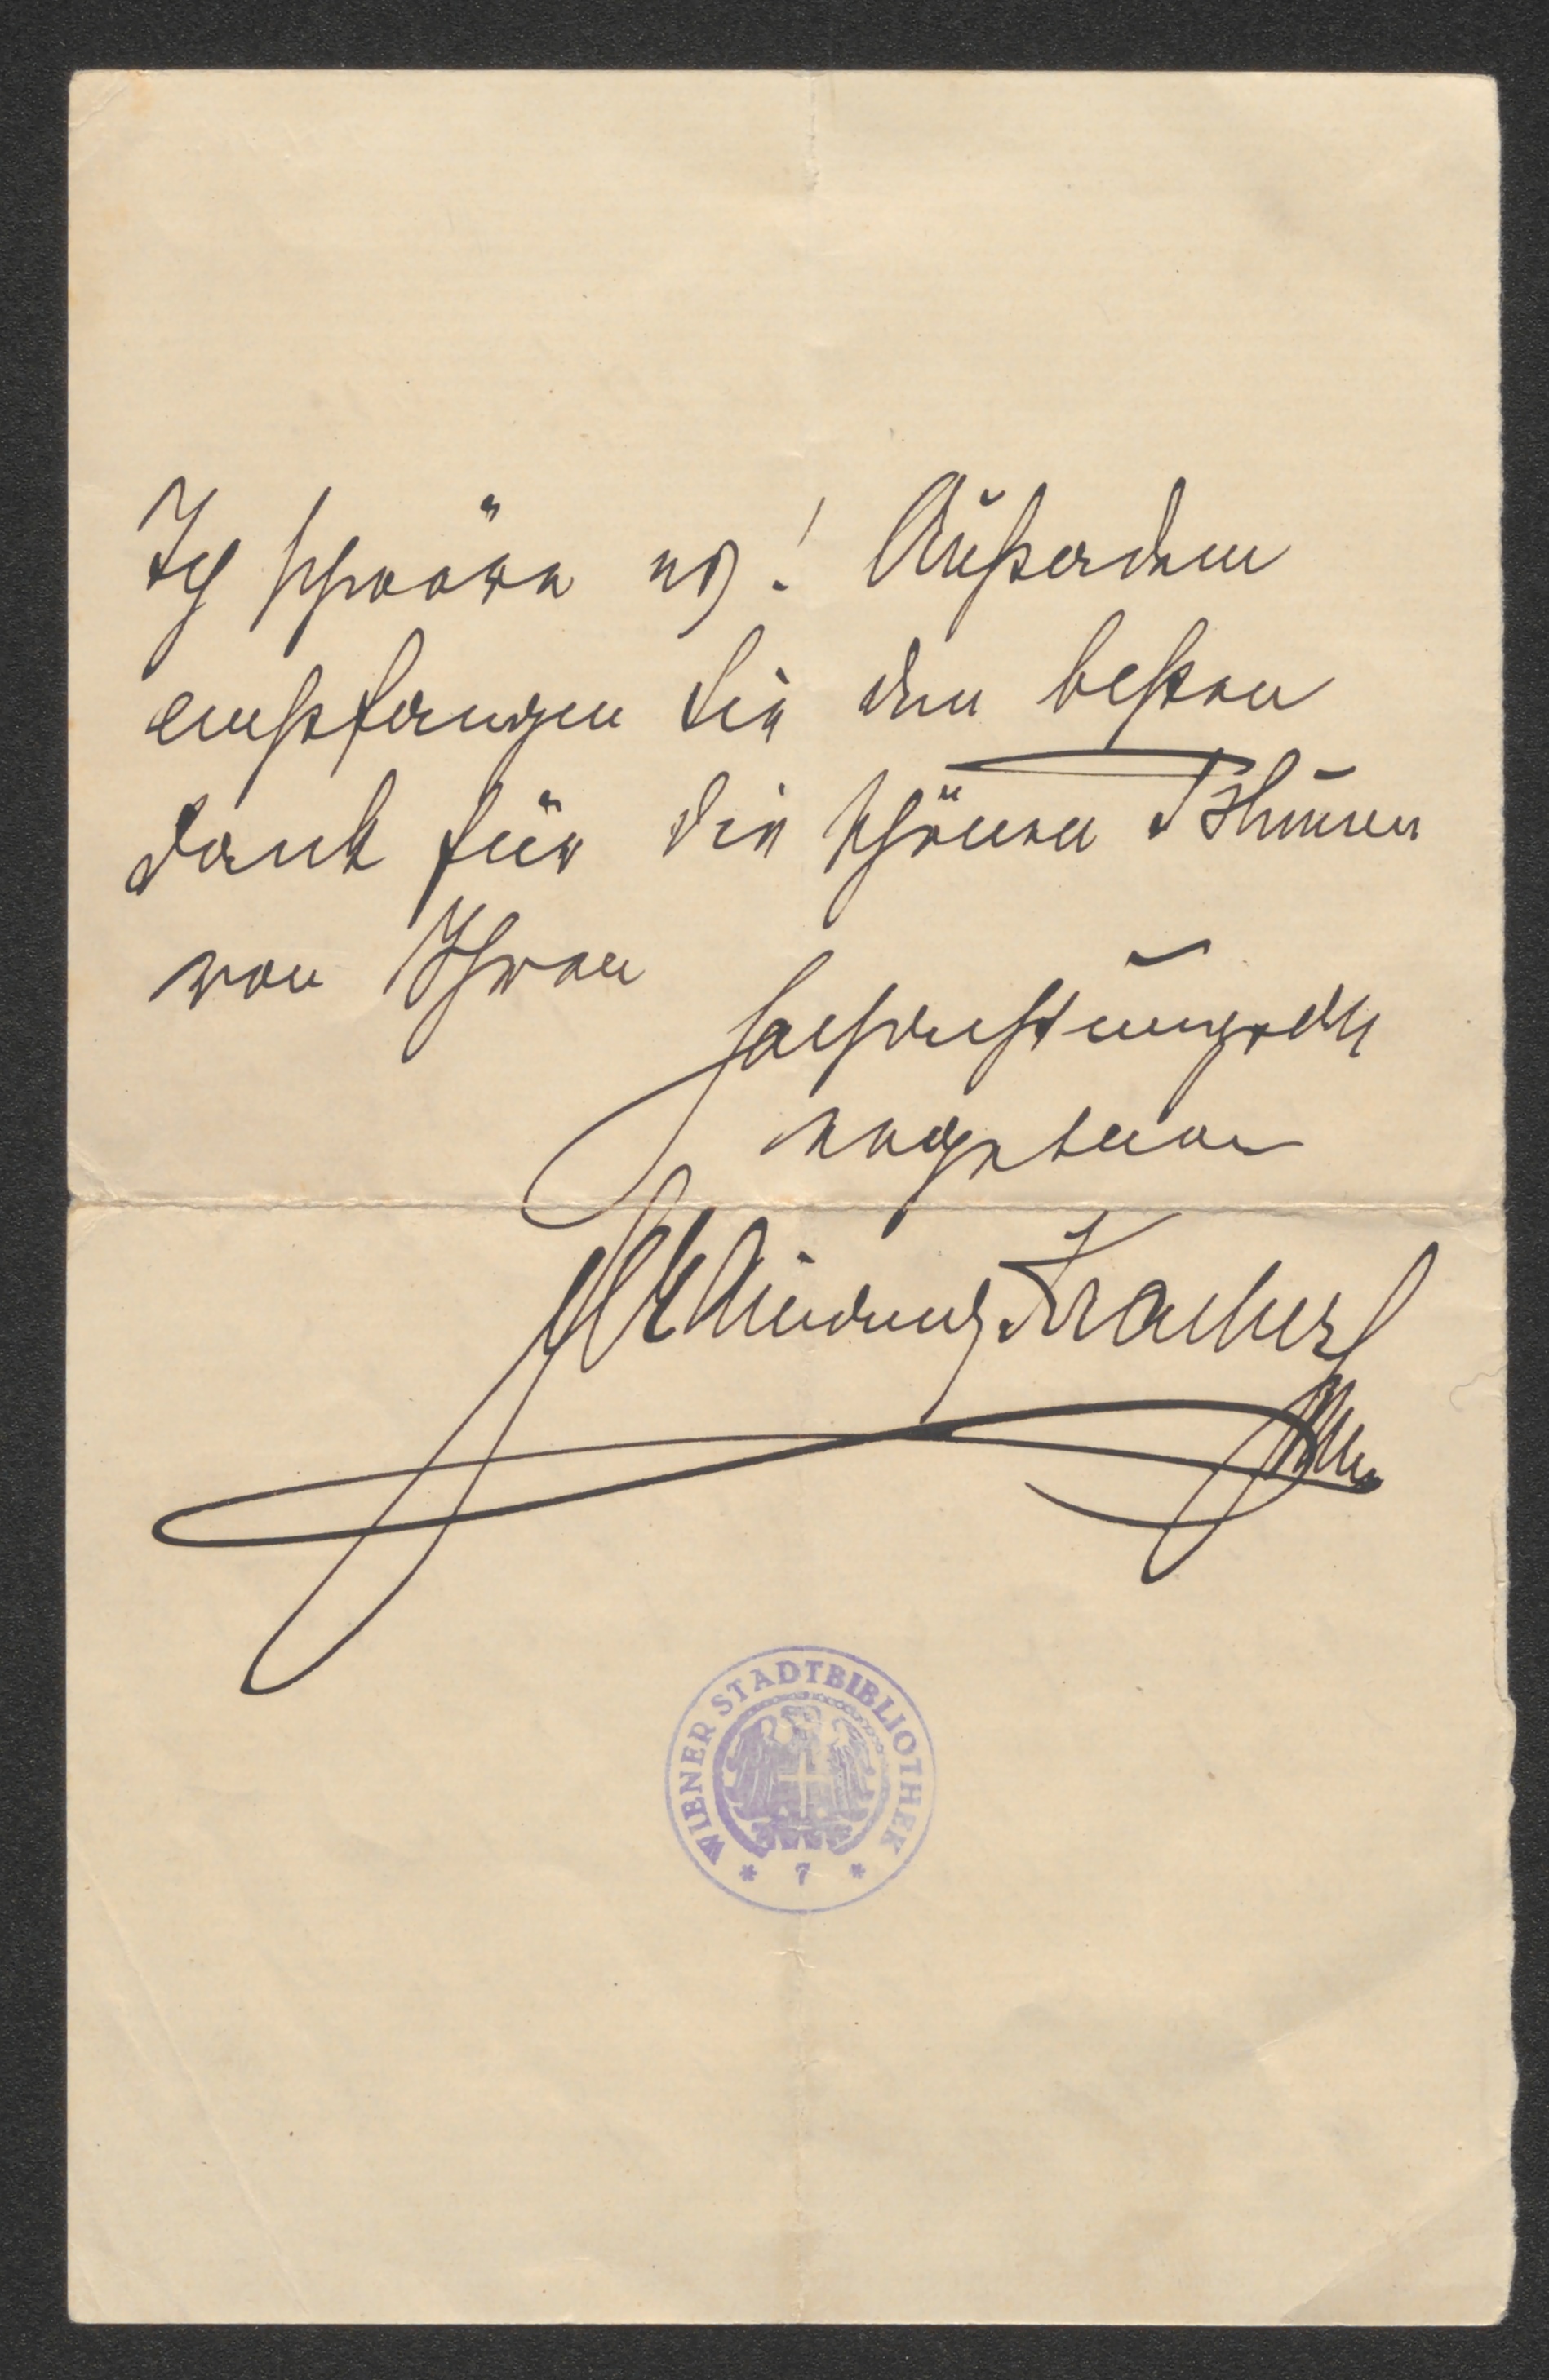 Ich schwöre es! Außerdem
empfangen Sie den besten
Dank für die schönen Blumen
von Ihren
hochachtungsvoll
ergebenen
WIENER STADTBIBLIOTHEK
* 7 *